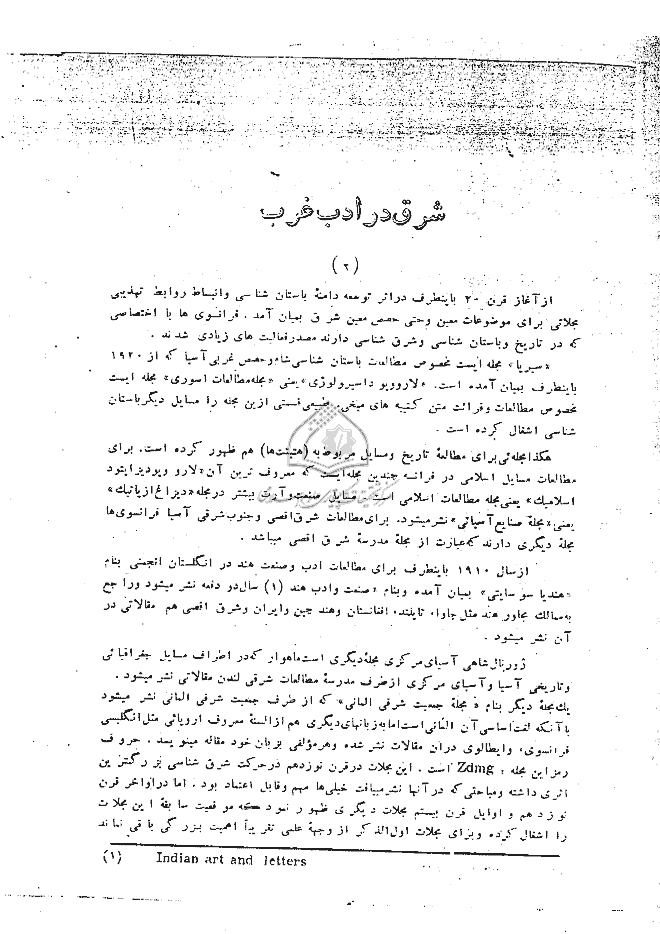 شرق در ادب غرب
(۲)
از آغاز قرن ۲۰ باینطرف در اثر توسعه دامنهٔ باستان شناسی وانبساط روابط تهذیبی
مجلاتی برای موضوعات معین وحتی حصص معین شرق بمیان آمد . فرانسوی ها با اختصاصی
که در تاریخ وباستان شناسی وشرق شناسی دارند مصدر فعالیت های زیادی شدند .
«سیریا» مجله ایست مخصوص مطالعات باستان شناسی شام وحصص غربی آسیا که از ۱۹۲۰
باینطرف بمیان آمده است. «لاروویو داسیرولوژی» یعنی «مجله مطالعات اسوری» مجله ایست
مخصوص مطالعات وقرائت متن کتیبه های میخی. طبیعی قسمتی ازین مجله را مسایل دیگر باستان
شناسی اشغال کرده است .
هکذا مجله ئی برای مطالعهٔ تاریخ ومسایل مربوط به (هتیت‌ها) هم ظهور کرده است. برای
مطالعات مسایل اسلامی در فرانسه چندین مجله ایست که معروف ترین آن «لارو ویو دیزایتود
اسلامیك» یعنی مجله مطالعات اسلامی است. مسایل صنعت وآرت بیشتر در مجله «دیزاغ ازیاتیك»
یعنی «مجلهٔ صنایع آسیائی» نشر میشود. برای مطالعات شرق اقصی وجنوب شرقی آسیا فرانسوی‌ها
مجلهٔ دیگری دارند که عبارت از مجلهٔ مدرسهٔ شرق اقصی میباشد .
از سال ۱۹۱۰ باینطرف برای مطالعات ادب وصنعت هند در انگلستان انجمنی بنام
«هندیا سوسایتی» بمیان آمده وبنام «صنعت وادب هند (۱) سال دو دفعه نشر میشود وراجع
به ممالك مجاور هند مثل جاوا، تایلند، افغانستان وهند چین وایران وشرق اقصی هم مقالاتی در
آن نشر میشود .
ژورنال شاهی آسیای مرکزی مجلهٔ دیگری است ماهوار که در اطراف مسایل جغرافیائی
وتاریخی آسیا وآسیای مرکزی از طرف مدرسهٔ مطالعات شرقی لندن مقالاتی نشر میشود .
یك مجلهٔ دیگر بنام «مجلهٔ جمعیت شرقی المانی» که از طرف جمعیت شرقی المانی نشر میشود
با آنکه لغت اساسی آن المانی است اما به زبانهای دیگری هم از السنهٔ معروف اروپائی مثل انگلیسی
فرانسوی، وایطالوی در آن مقالات نشر شده وهر مؤلفی بزبان خود مقاله مینویسد . حروف
رمز این مجله : Zdmg است . این مجلات در قرن نوزدهم در حرکت شرق شناسی بزرگترین
اثری داشته ومباحثی که در آنها نشر میافت خیلی‌ها مهم وقابل اعتماد بود . اما در اواخر قرن
نوزدهم و اوایل قرن بیستم مجلات دیگری ظهور نمود که موقعیت سابقهٔ این مجلات
را اشغال کرده وبرای مجلات اول الذکر از وجههٔ علمی تقریباً اهمیت بزرگی باقی نماند
(۱) Indian art and letters